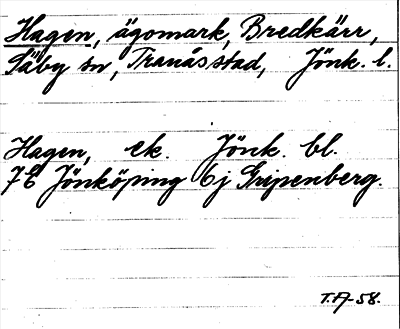 Hagen, ägomark, Bredkärr,
Säby sn, Tranås stad, Jönk. l.
Hagen, ek. Jönk. bl.
7E Jönköping 6j Gripenberg.
T.A-58.